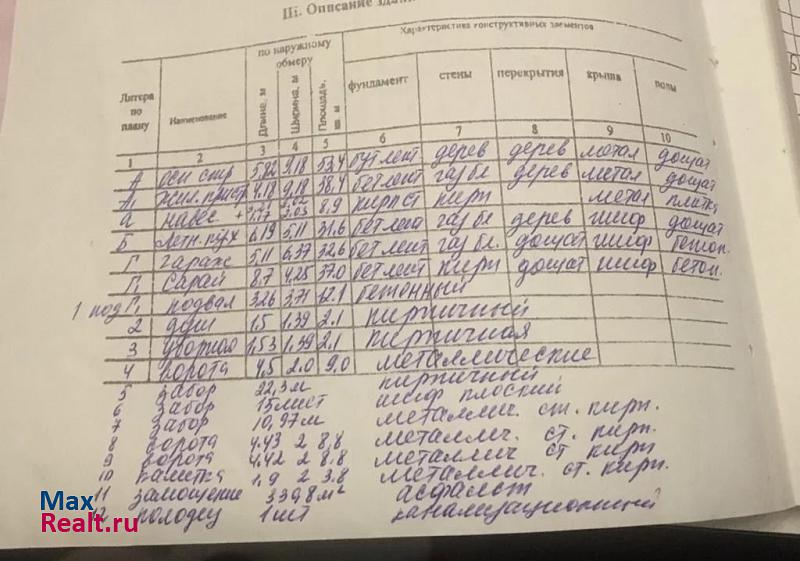 III. Описание
Литера по плану
Наименование
по наружному обмеру
Длина, м
Ширина, м
Площадь,
Характеристика конструктивных элементов
фундамент
стены
перекрытия
крыша
полы
1 2 3 4 5 6 7 8 9 10
А осн стр 5,82 9,18 53,4 бут лент дерев дерев метал дощат
А₁ жил. пристр 4.18 9,18 38,4 бет лент газ бе дерев метал дощат
а навес 8,9 кирп ст кирп метал плитка
Б летн. кух 6,19 5,11 31.6 бет лент газ бе дерев шиф дощат
Г гараж 5,11 6,37 32.6 бет лент газ бе. дощат шиф бетон.
Г₁ сарай 8,7 4,25 37.0 бет лент кирп дощат шиф бетон.
1 под Г₁ подвал 3.26 3,71 12.1 бетонный
2 душ 1,5 1,39 2.1 кирпичный
3 уборная 1,53 1,39 2.1 кирпичная
4 ворота 4,5 2.0 9,0 металлические
5 забор 22,3 м кирпичный
6 забор 15 лист шиф плоский
7 забор 10,97 м металлич. ст. кирп.
8 ворота 4.43 2 8,8 металлич. ст. кирп.
9 ворота 4.42 2 8.8 металлич ст кирп
10 калитка 1,9 2 3.8 металлич. ст. кирп.
11 замощение 339,8 м² асфальт
12 колодец 1 шт канализационный
Max
Realt.ru